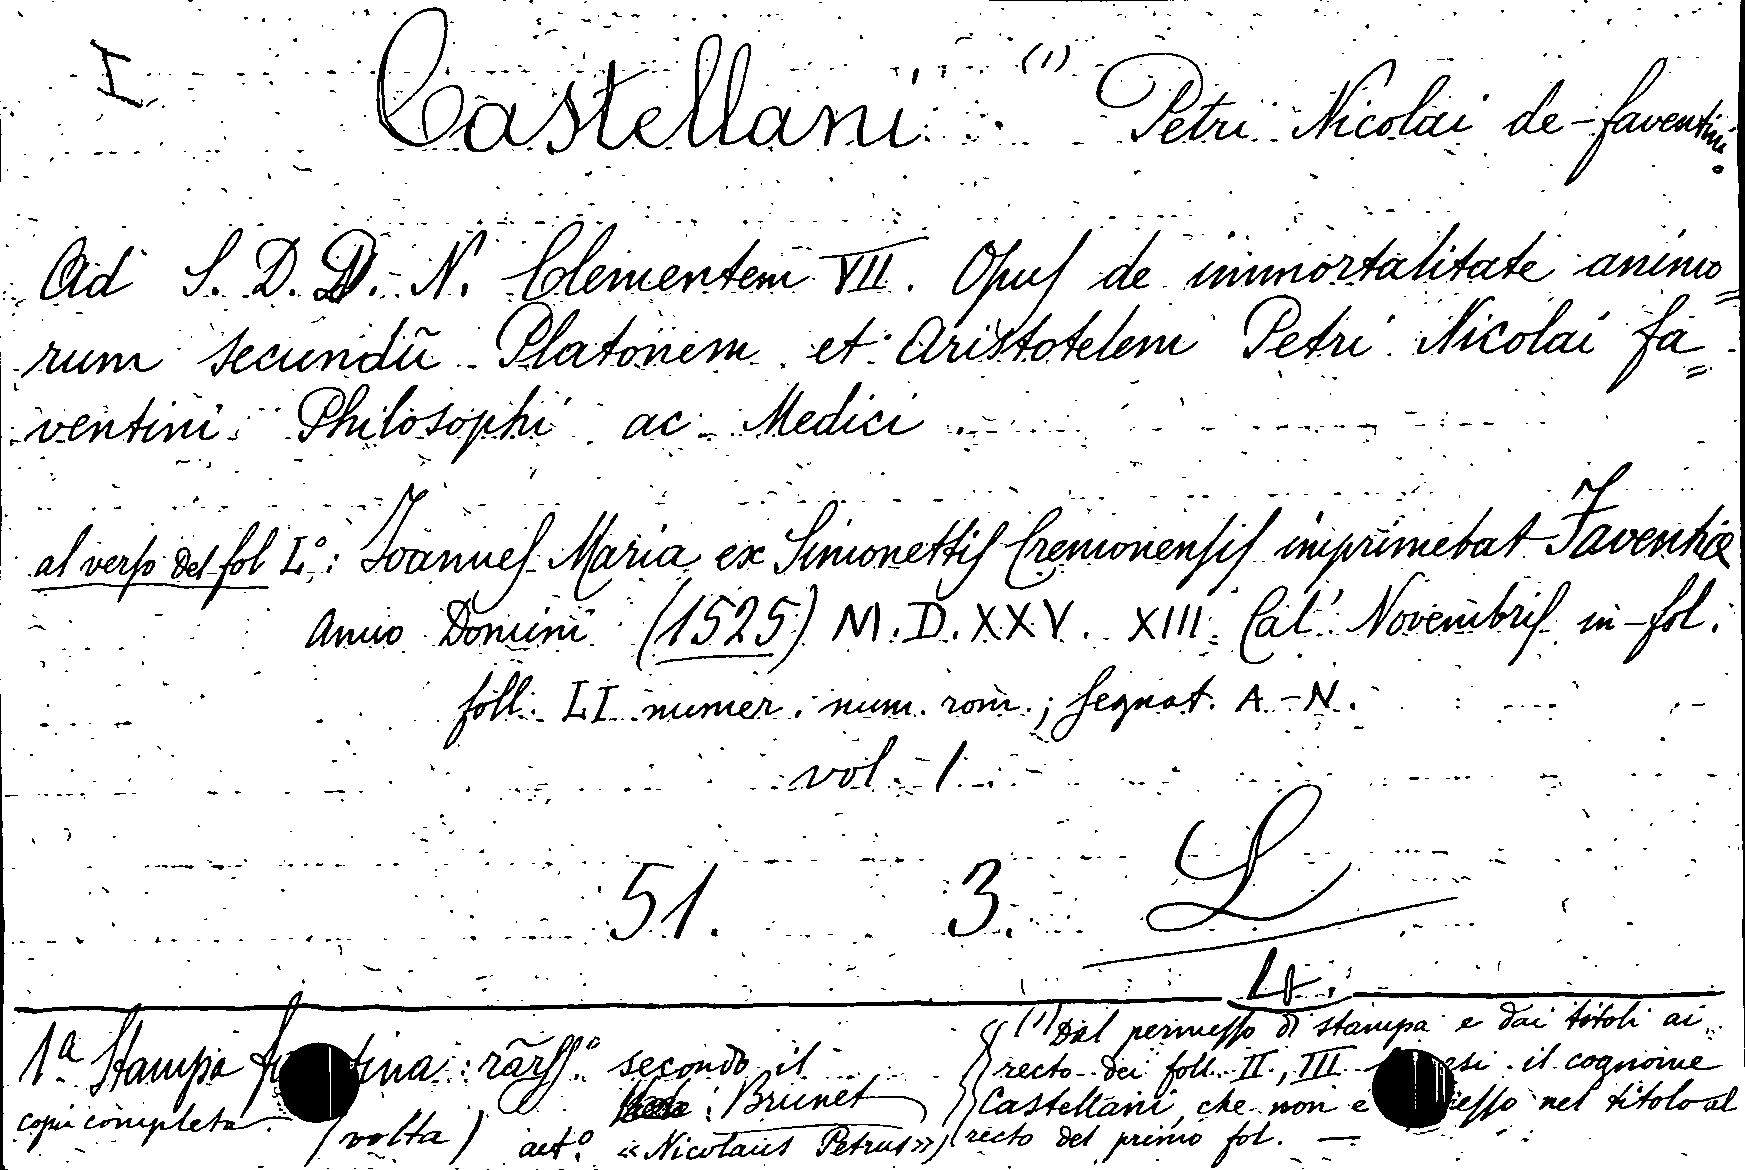 I. Castellani (1) Petri Nicolai de-faventini.
Ad S. D. D. N. Clementem VII. Opus de immortalitate animo=
rum secundũ Platonem et Aristotelem Petri Nicolai fa=
ventini Philosophi ac Medici
al verso del fol L°: Joannes Maria ex Simonettis Cremonensis imprimebat Faventiæ
Anno Domini (1525) M.D.XXV. XIII Cal' Novembris in-fol.
foll. LI numer. num. rom.; segnat. A-N.
vol. 1.
51. 3. L
4.
1ª Stampa tina: rãrss.° secondo il
copia completa. (volta) : Brunet
art.° «Nicolaus Petrus»)
(1) Dal permesso di stampa e dai titoli ai
recto dei foll. II, III il cognome
Castellani, che non è nel titolo al
recto del primo fol. —